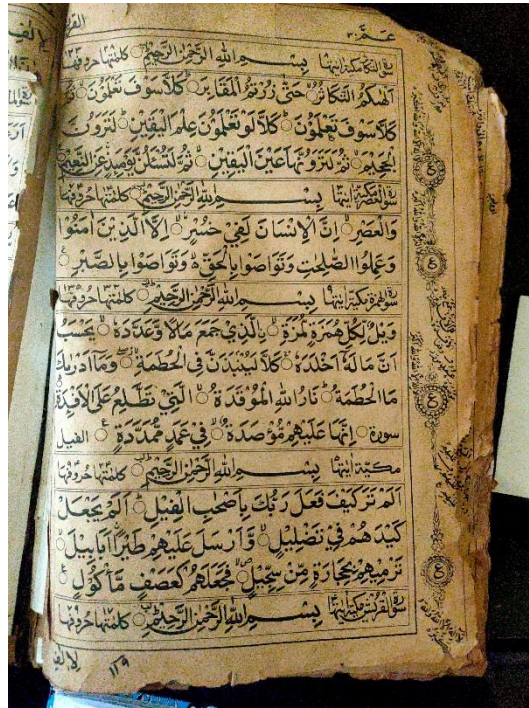 عم ٣٠
سورة التكاثر مكية ايتها بسم الله الرحمن الرحيم كلمتها حروفها
الهكم التكاثر حتى زرتم المقابر كلا سوف تعلمون ثم
كلا سوف تعلمون كلا لو تعلمون علم اليقين لترون
الجحيم ثم لترونها عين اليقين ثم لتسئلن يومئذ عن النعيم
سورة العصر مكية ايتها بسم الله الرحمن الرحيم كلمتها حروفها
والعصر ان الانسان لفي خسر الا الذين امنوا
وعملوا الصلحت وتواصوا بالحق وتواصوا بالصبر
سورة الهمزة مكية ايتها بسم الله الرحمن الرحيم كلمتها حروفها
ويل لكل همزة لمزة الذي جمع مالا وعدده يحسب
ان ماله اخلده كلا لينبذن في الحطمة وما ادريك
ما الحطمة نار الله الموقدة التي تطلع على الافدة
سورة انها عليهم مؤصدة في عمد ممددة الفيل
مكية ايتها بسم الله الرحمن الرحيم كلمتها حروفها
الم تر كيف فعل ربك باصحب الفيل الم يجعل
كيدهم في تضليل وارسل عليهم طيرا ابابيل
ترميهم بحجارة من سجيل فجعلهم كعصف ماكول
سورة القريش مكية ايتها بسم الله الرحمن الرحيم كلمتها حروفها
١٢٩